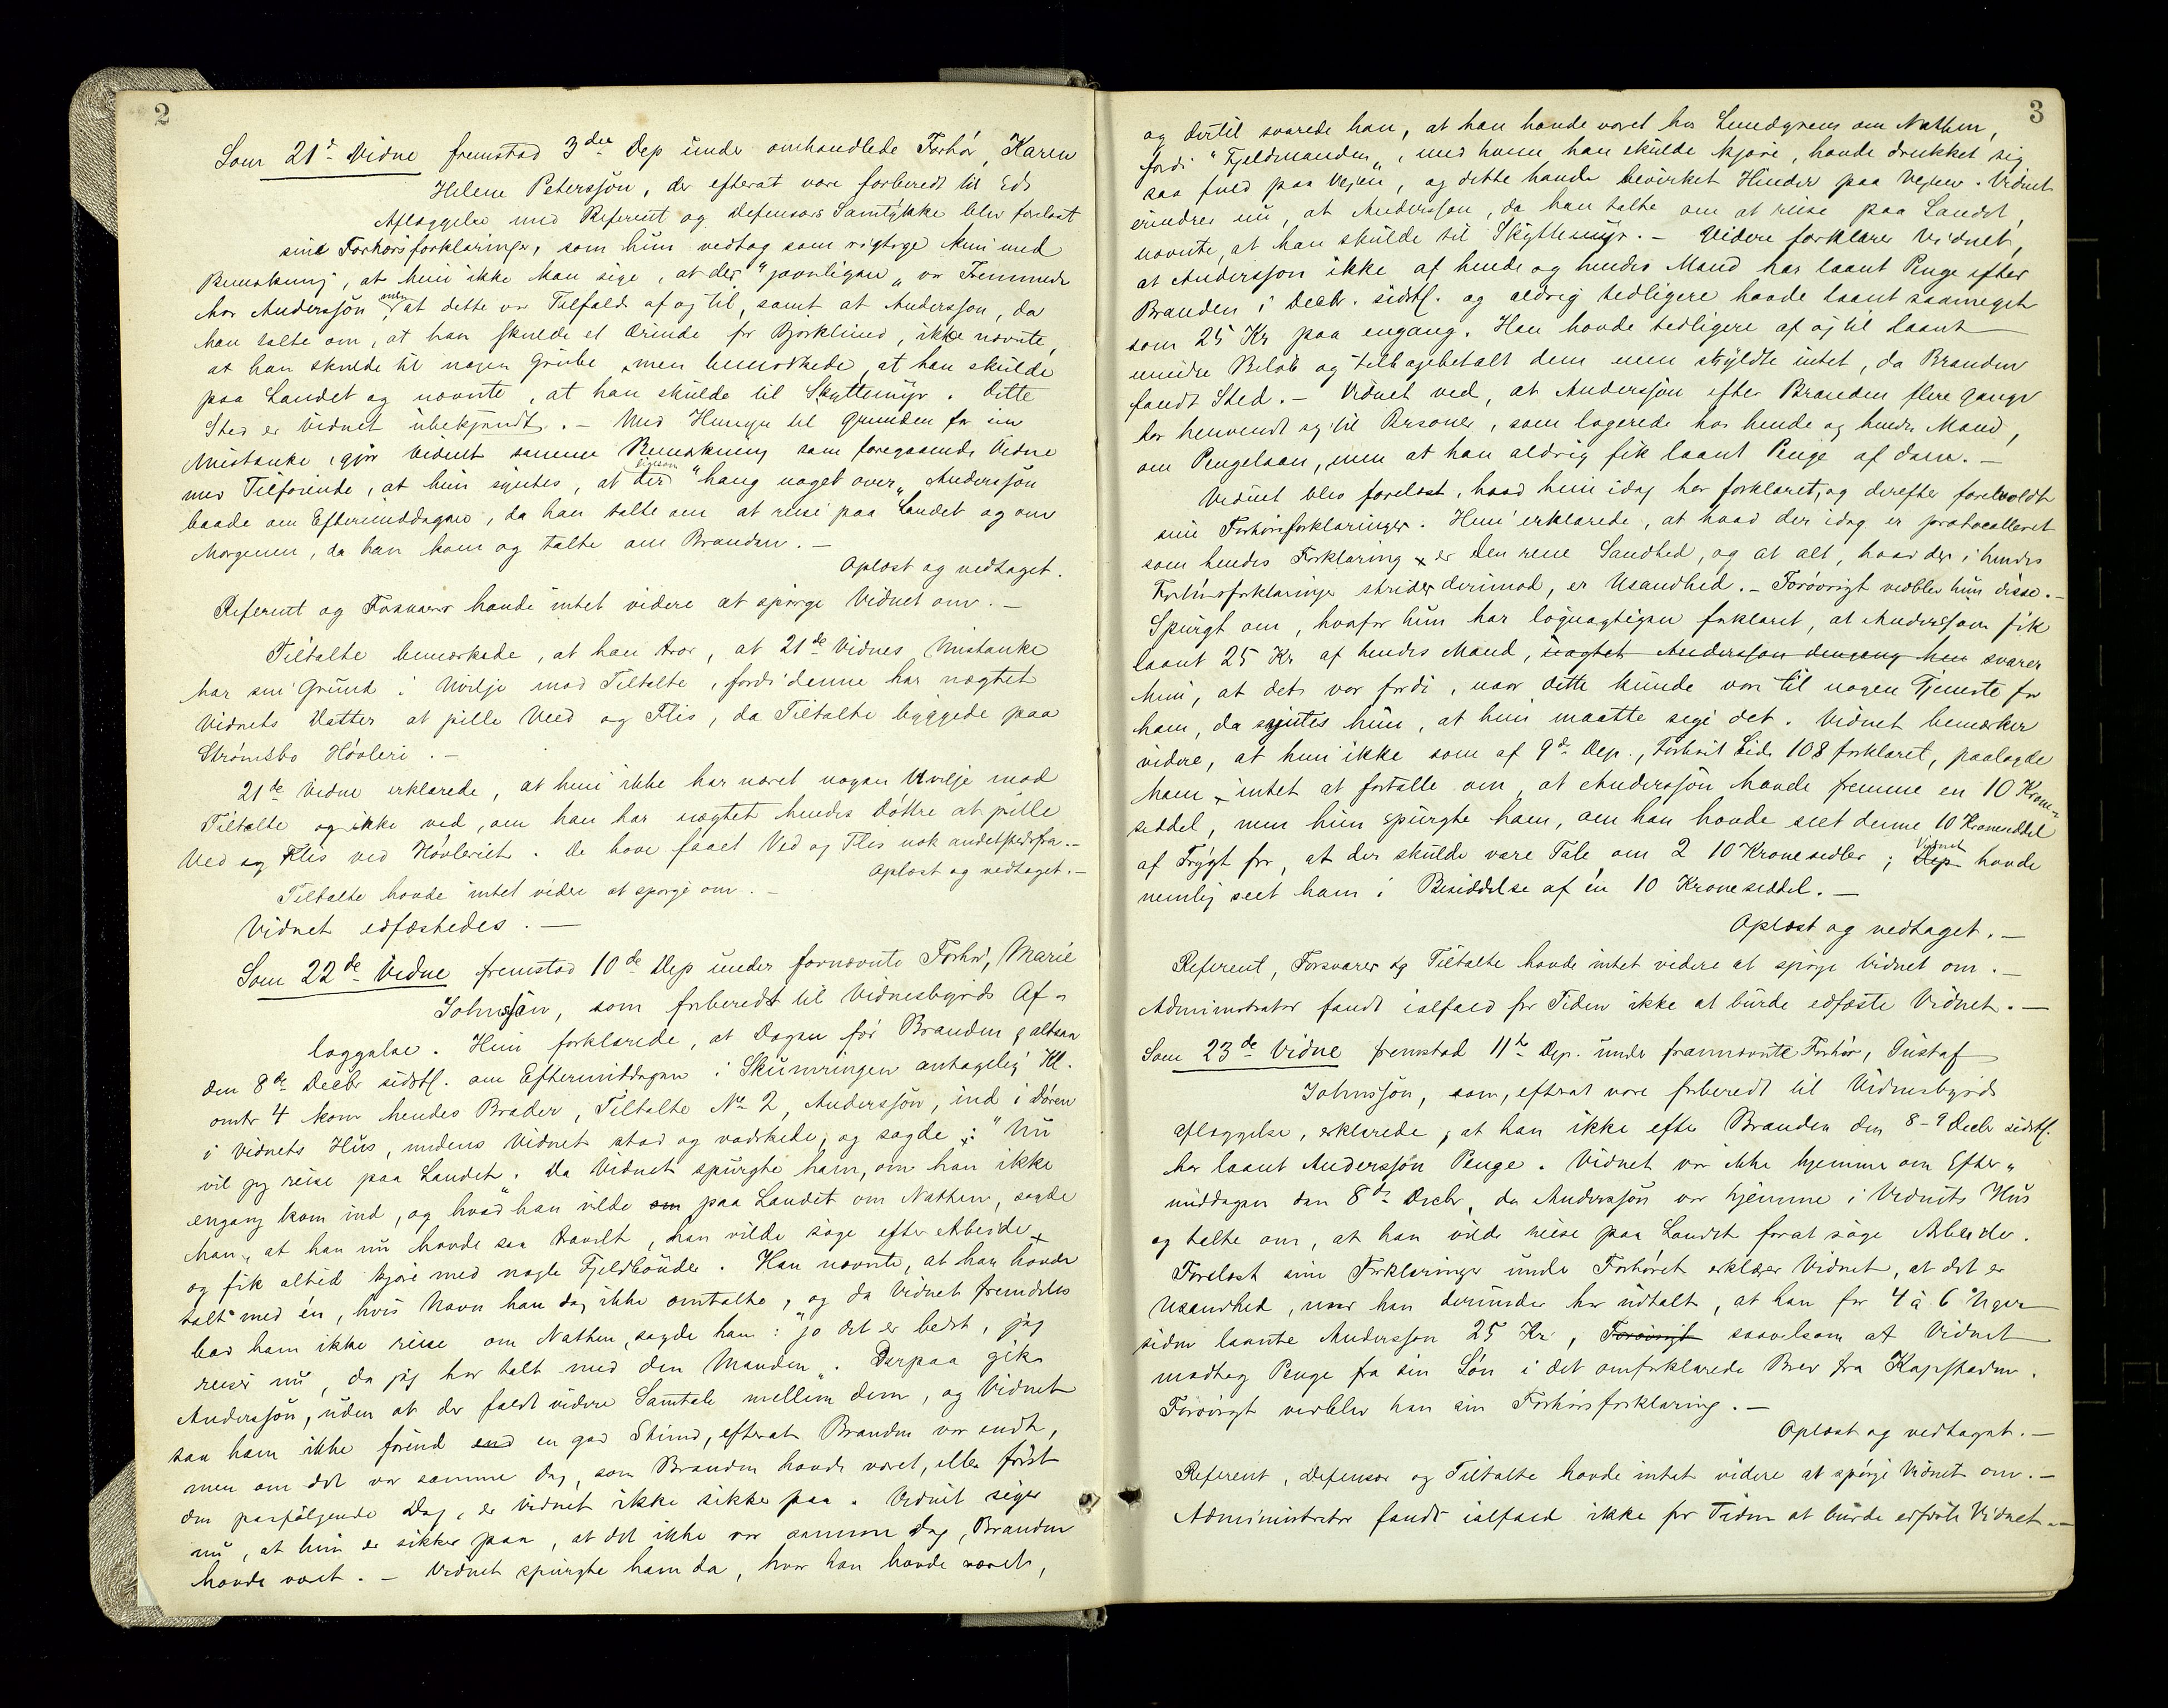 2
Som 21de Vidne fremstod 3die Dep under omhandlede Forhør, Karen
Helene Petersson, der efterat være forberedt til Eds
Aflæggelse med Referent og Defensors Samtykke blev forelæst
sine Forhørsforklaringer, som hun vedtog som rigtige kun med
Bemærkning, at hun ikke kan sige, at der "jevnligen" var Fremmede
hos Andersson men at dette var Tilfælde af og til, samt at Andersson, da
han talte om, at han skulde et Ærinde for Bjørklund, ikke nævnte,
at han skulde til nogen Grube, men bemærkede, at han skulde
paa Landet og nævnte, at han skulde til Skyttemyr. Dette
Sted er Vidnet ubekjendt. – Med Hensyn til Grunden for sin
Mistanke, gjør Vidnet samme Bemærkning som foregaaende Vidne
med Tilføiende, at hun syntes, at der ligesom "hang noget over" Andersson
baade om Eftermiddagen, da han talte om at reise paa Landet og om
Morgenen, da han kom og talte om Branden. –
Oplæst og vedtaget.
Referent og Forsvarer havde intet videre at spørge Vidnet om. –
Tiltalte bemærkede, at han tror, at 21de Vidnes Mistanke
har sin Grund i Uvilje mod Tiltalte, fordi denne har nægtet
Vidnets Døtter at pille Ved og Flis, da Tiltalte byggede paa
Strømsbo Høvleri. –
21de Vidne erklærede, at hun ikke har næret nogen Uvilje mod
Tiltalte og ikke ved, om han har nægtet hendes Døttre at pille
Ved og Flis ved Høvleriet. De have faaet Ved og Flis nok andetstedsfra. –
Oplæst og vedtaget. –
Tiltalte havde intet videre at spørge om. –
Vidnet edfæstedes. –
Som 22de Vidne fremstod 10de Dep under fornævnte Forhør, Marie
Johnsson, som forberedt til Vidnesbyrds Af-
læggelse. Hun forklarede, at Dagen før Branden, altsaa
den 8de Decbr sidstl. om Eftermiddagen i Skumringen antagelig Kl.
omtr 4 kom hendes Broder, Tiltalte No 2, Andersson, ind i Døren
i Vidnets Hus, medens Vidnet stod og vadskede, og sagde: "Nu
vil jeg reise paa Landet. Da Vidnet spurgte ham, om han ikke
engang kom ind, og hvad han vilde om paa Landet om Natten, sagde
han, at han nu havde saa travelt, han vilde søge efter Arbeide
og fik altid kjøre med nogle Fjeldbønder. Han nævnte, at han havde
talt med én, hvis Navn han dog ikke omtalte, og da Vidnet fremdeles
bad ham ikke reise om Natten, sagde han: "jo det er bedst, jeg
reiser nu, da jeg har talt med den Manden". Derpaa gik
Andersson, uden at der faldt videre Samtale mellem dem, og Vidnet
saa ham ikke førend end en god Stund, efterat Branden var endt,
men om det var samme Dag, som Branden havde været, eller først
den paafølgende Dag, er Vidnet ikke sikker paa. Vidnet siger
nu, at hun er sikker paa, at det ikke var samme Dag, Branden
havde været. – Vidnet spurgte ham da, hvor han havde været,
3
og dertil svarede han, at han havde været hos Lundgrens om Natten,
fordi "Fjeldmanden", med hvem han skulde kjøre, havde drukket sig
saa fuld paa Vejen, og dette havde bevirket Hinder paa Vejen. Vidnet
erindrer nu, at Andersson, da han talte om at reise paa Landet,
nævnte, at han skulde til Skyttemyr. – Videre forklarer Vidnet,
at Andersson ikke af hende og hendes Mand har laant Penge efter
Branden i Decbr. sidstl. og aldrig tidligere havde laant saameget
som 25 Kr paa engang. Han havde tidligere af og til laant
mindre Beløb og tilbagebetalt dem men skyldte intet, da Branden
fandt Sted. – Vidnet ved, at Andersson efter Branden flere Gange
har henvendt sig til Personer, som logerede hos hende og hendes Mand,
om Pengelaan, men at han aldrig fik laant Penge af dem. –
Vidnet blev forelæst, hvad hun idag har forklaret, og derefter foreholdt
sine Forhørsforklaringer. Hun erklærede, at hvad der idag er protocolleret
som hendes Forklaring er den rene Sandhed, og at alt, hvad der i hendes
Forhørsforklaringer strider derimod, er Usandhed. – Forøvrigt vedblev hun disse. –
Spurgt om, hvorfor hun har løgnagtigen forklaret, at Andersson fik
laant 25 Kr af hendes Mand, uagtet Andersson dengang hun svarer
hun, at det var fordi, naar dette kunde være til nogen Tjeneste for
ham, da syntes hun, at hun maatte sige det. Vidnet bemærker
videre, at hun ikke som af 9de Dep., Forhørets Side 108 forklaret, paalagde
ham intet at fortælle om, at Andersson havde fremme en 10 Krone-
seddel, men hun spurgte ham, om han havde seet denne 10 Kroneseddel
af Frygt for, at der skulde være Tale om 2 10 Kronesedler; Dep Vidnet havde
nemlig seet ham i Besiddelse af én 10 Kroneseddel. –
Oplæst og vedtaget. –
Referent, Forsvarer og Tiltalte havde intet videre at spørge Vidnet om. –
Administrator fandt ialfald for Tiden ikke at burde edfæste Vidnet. –
Som 23de Vidne fremstod 11te Dep. under fornævnte Forhør, Gustaf
Johnsson, som, efterat være forberedt til Vidnesbyrds
aflæggelse, erklærede, at han ikke efter Branden den 8-9 Decbr sidstl.
har laant Andersson Penge. Vidnet var ikke hjemme om Efter-
middagen den 8de Decbr, da Andersson var hjemme i Vidnets Hus
og talte om, at han vilde reise paa Landet forat søge Arbeide.
Forelæst sine Forklaringer under Forhøret erklærer Vidnet, at det er
Usandhed, naar han derunder har udtalt, at han for 4 à 6 Uger
siden laante Andersson 25 Kr, Forøvrigt saavelsom at Vidnet
modtog Penge fra sin Søn i det omforklarede Brev fra Kapstaden.
Forøvrigt vedblev han sin Forhørsforklaring. –
Oplæst og vedtaget. –
Referent, Defensor og Tiltalte havde intet videre at spørge Vidnet om. –
Administrator fandt ialfald ikke for Tiden at burde edfæste Vidnet. –